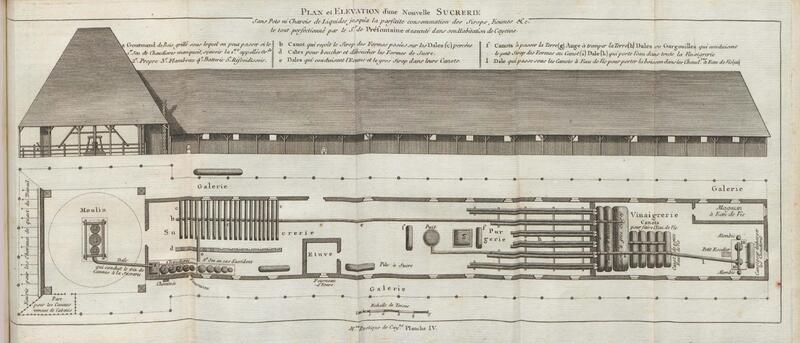 PLAN et ELEVATION d'une Nouvelle SUCRERIE
Sans Pots ni Charois de Liquides, jusqu'a la parfaite consommation des Sirops, Ecumes &c.
le tout perfectionné par le Sr. de Préfontaine et executé dans son Habitation de Cayenne
a Gourmand de Bois, grillé sous lequel on peut passer si le
Sr. Jeu de Chaudieres manquoit, sçavoir la 1re. appellée de
Propre Flambeau 4e. Batterie
b Canot qui reçoit le Sirop des Formes posées sur les Dales (c) percées
d Cales pour boucher et déboucher les Formes de Sucre.
e Dales qui conduisent l'Ecume et le gros Sirop dans leurs Canots.
f Canots à passer la Terre (g) Auge à tremper la Terre (h) Dales ou Gargouilles qui conduisent
le petit Sirop des Formes au Canot (i) Dale (k) qui porte l'eau dans toute la Vinaigrerie
l Dale qui passe sous les Canots à Eau de Vie pour porter la boisson dans les
Galerie
Galerie
Moulin
b
c
Sucrerie
d
Dale
qui conduit le vin de
Cannes à la Sucrerie
Chaudieres
Sr. Jeu en cas d'accident
Cheminée
Fourneaux
Etuve
Fourneau
d'Etuve
Pile à Sucre
f
Puit
g
f
Purgerie
h
Vinaigrerie
Canots
pour faire l'Eau de Vie
Magasin
à Eau de Vie
Alambic
Petit Escalier
Alambic
Parc
pour les Cannes
venant de Cabrois
Galerie
Echelle de Toises
Mon. Rustique de Caye. Planche IV.